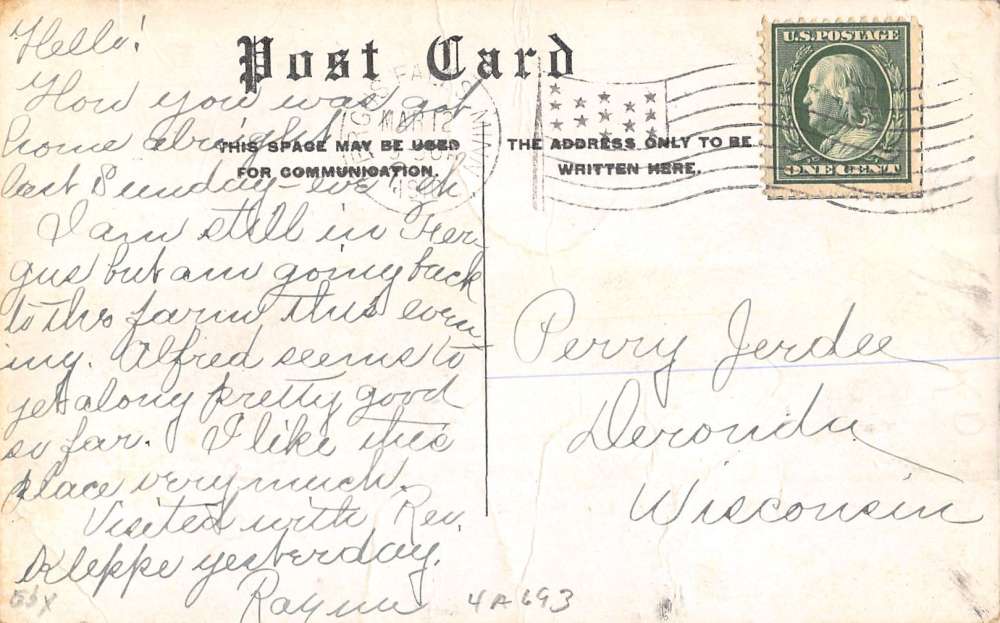 Post Card
THIS SPACE MAY BE USED
FOR COMMUNICATION.
THE ADDRESS ONLY TO BE
WRITTEN HERE.
U.S.POSTAGE
ONE CENT
FERGUS FALLS MINN.
MAR 12
Hello!
How you was got
home alright
last Sunday - eve eh
I am still in Fer-
gus but am going back
to the farm this even-
ing. Alfred seems to
get along pretty good
so far. I like this
place very much.
Visited with Rev.
Kleppe yesterday.
Perry Jerdee
Deronda
Wisconsin
4A693